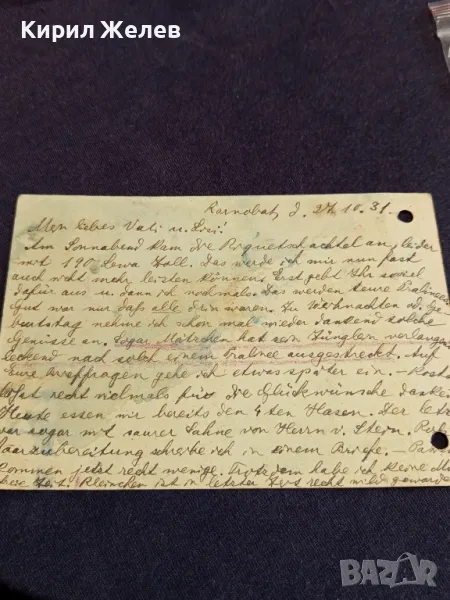 Кирил Желев
Karnobat, d. 27.10.31.
Mein liebes Vati u. 
Am Sonnabend kam die schachtel an, leider
mit 190 Lewa Zoll. Das werde ich mir nun fast
auch nicht mehr leisten können. Erst gebt Ihr soviel
dafür aus u. dann ich nochmals. Das werden teure Pralinen
Gut war nur daß alle drin waren. Zu Weihnachten od. Ge
burtstag nehme ich schon mal wieder dankend solche
Genüsse an. Sogar hat sein Zünglein verlangend
leckend nach solch einem Pralinee ausgestreckt. Auf
Eure Anfragen gehe ich etwas später ein. –
läßt recht vielmals für die Glückwünsche danken
Heute essen wir bereits den 4ten Hasen. Der letzte
war sogar mit saurer Sahne von Herrn v. Stern.
zubereitung schreibe ich in einem Briefe. –
kommen jetzt recht wenige. Trotzdem habe ich keine
Zeit. Kleinchen ist in letzter Zeit recht wild geworden
BAZAR